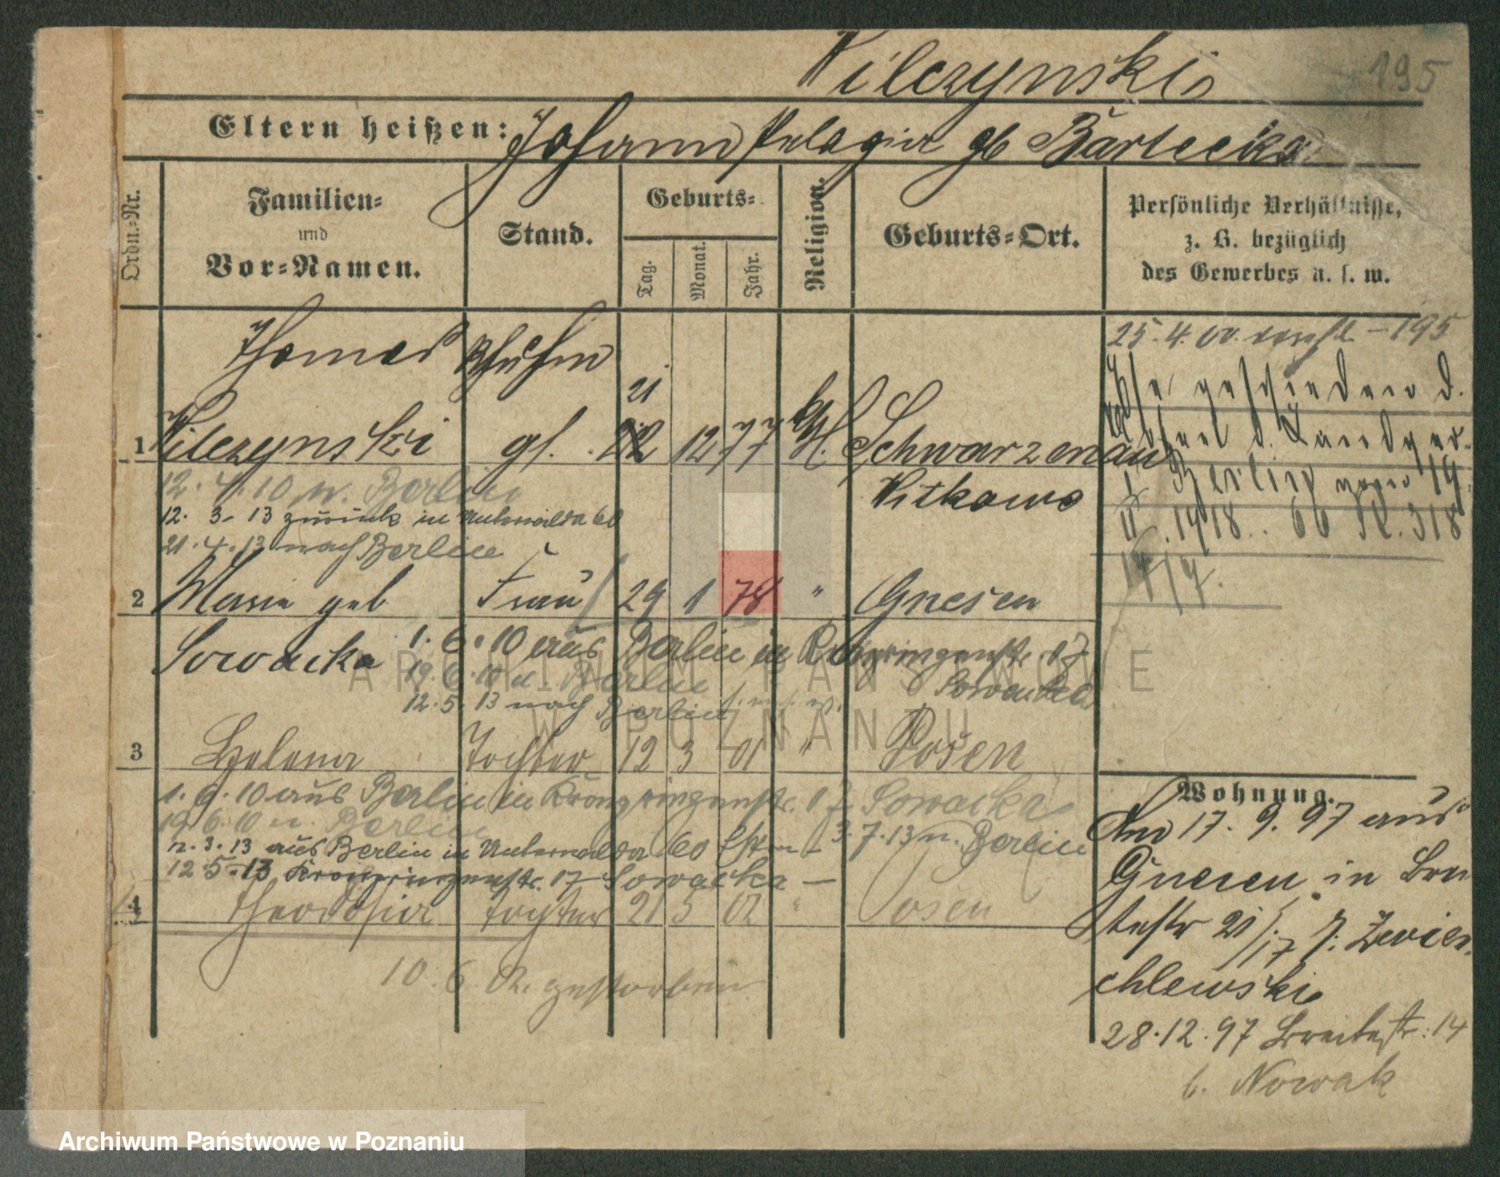 Wilczynski
195
Eltern heißen: Johann Pelagia gb Bartecka
Ordn.-Nr.
Familien-
und
Vor-Namen.
Stand.
Geburts-
Tag.
Monat.
Jahr.
Religion.
Geburts-Ort.
Persönliche Verhältnisse,
z. B. bezüglich
des Gewerbes u. s. w.
25.4.00 - 195
Thomas Schuhm
21
1 Wilczynski gs. 22 12 77 Schwarzenau
Witkowo
Ehe geschieden d.
d. Landger.
Berlin vom 19
II. 1918. 66 R. 318
17/17.
12.4.10 n. Berlin
12.3.13 zurück in Unterwilda 60
21.4.13 nach Berlin
2 Marie geb Frau 29 1 78 " Gnesen
Sowacka 1.6.10 aus Berlin in Kronprinzenstr. 17
19.6.10 n. Berlin Sowacka
12.5.13 nach Berlin
3 Helena Tochter 12 3 01 " Posen
1.6.10 aus Berlin in Kronprinzenstr. 17 Sowacka
19.6.10 n. Berlin
12.3.13 aus Berlin in Unterwilda 60 - 3.7.13 n. Berlin
12.5.13 Kronprinzenstr. 17 Sowacka -
4 Theodosia Tochter 21 5 02 " Posen
10.6.02. gestorben
Wohnung.
Am 17.9.97 aus
Gnesen in Brei
testr 21/17 b.
chlewski
28.12.97 Breitestr. 14
b. Nowak
ARCHIWUM PAŃSTWOWE
W POZNANIU
Archiwum Państwowe w Poznaniu